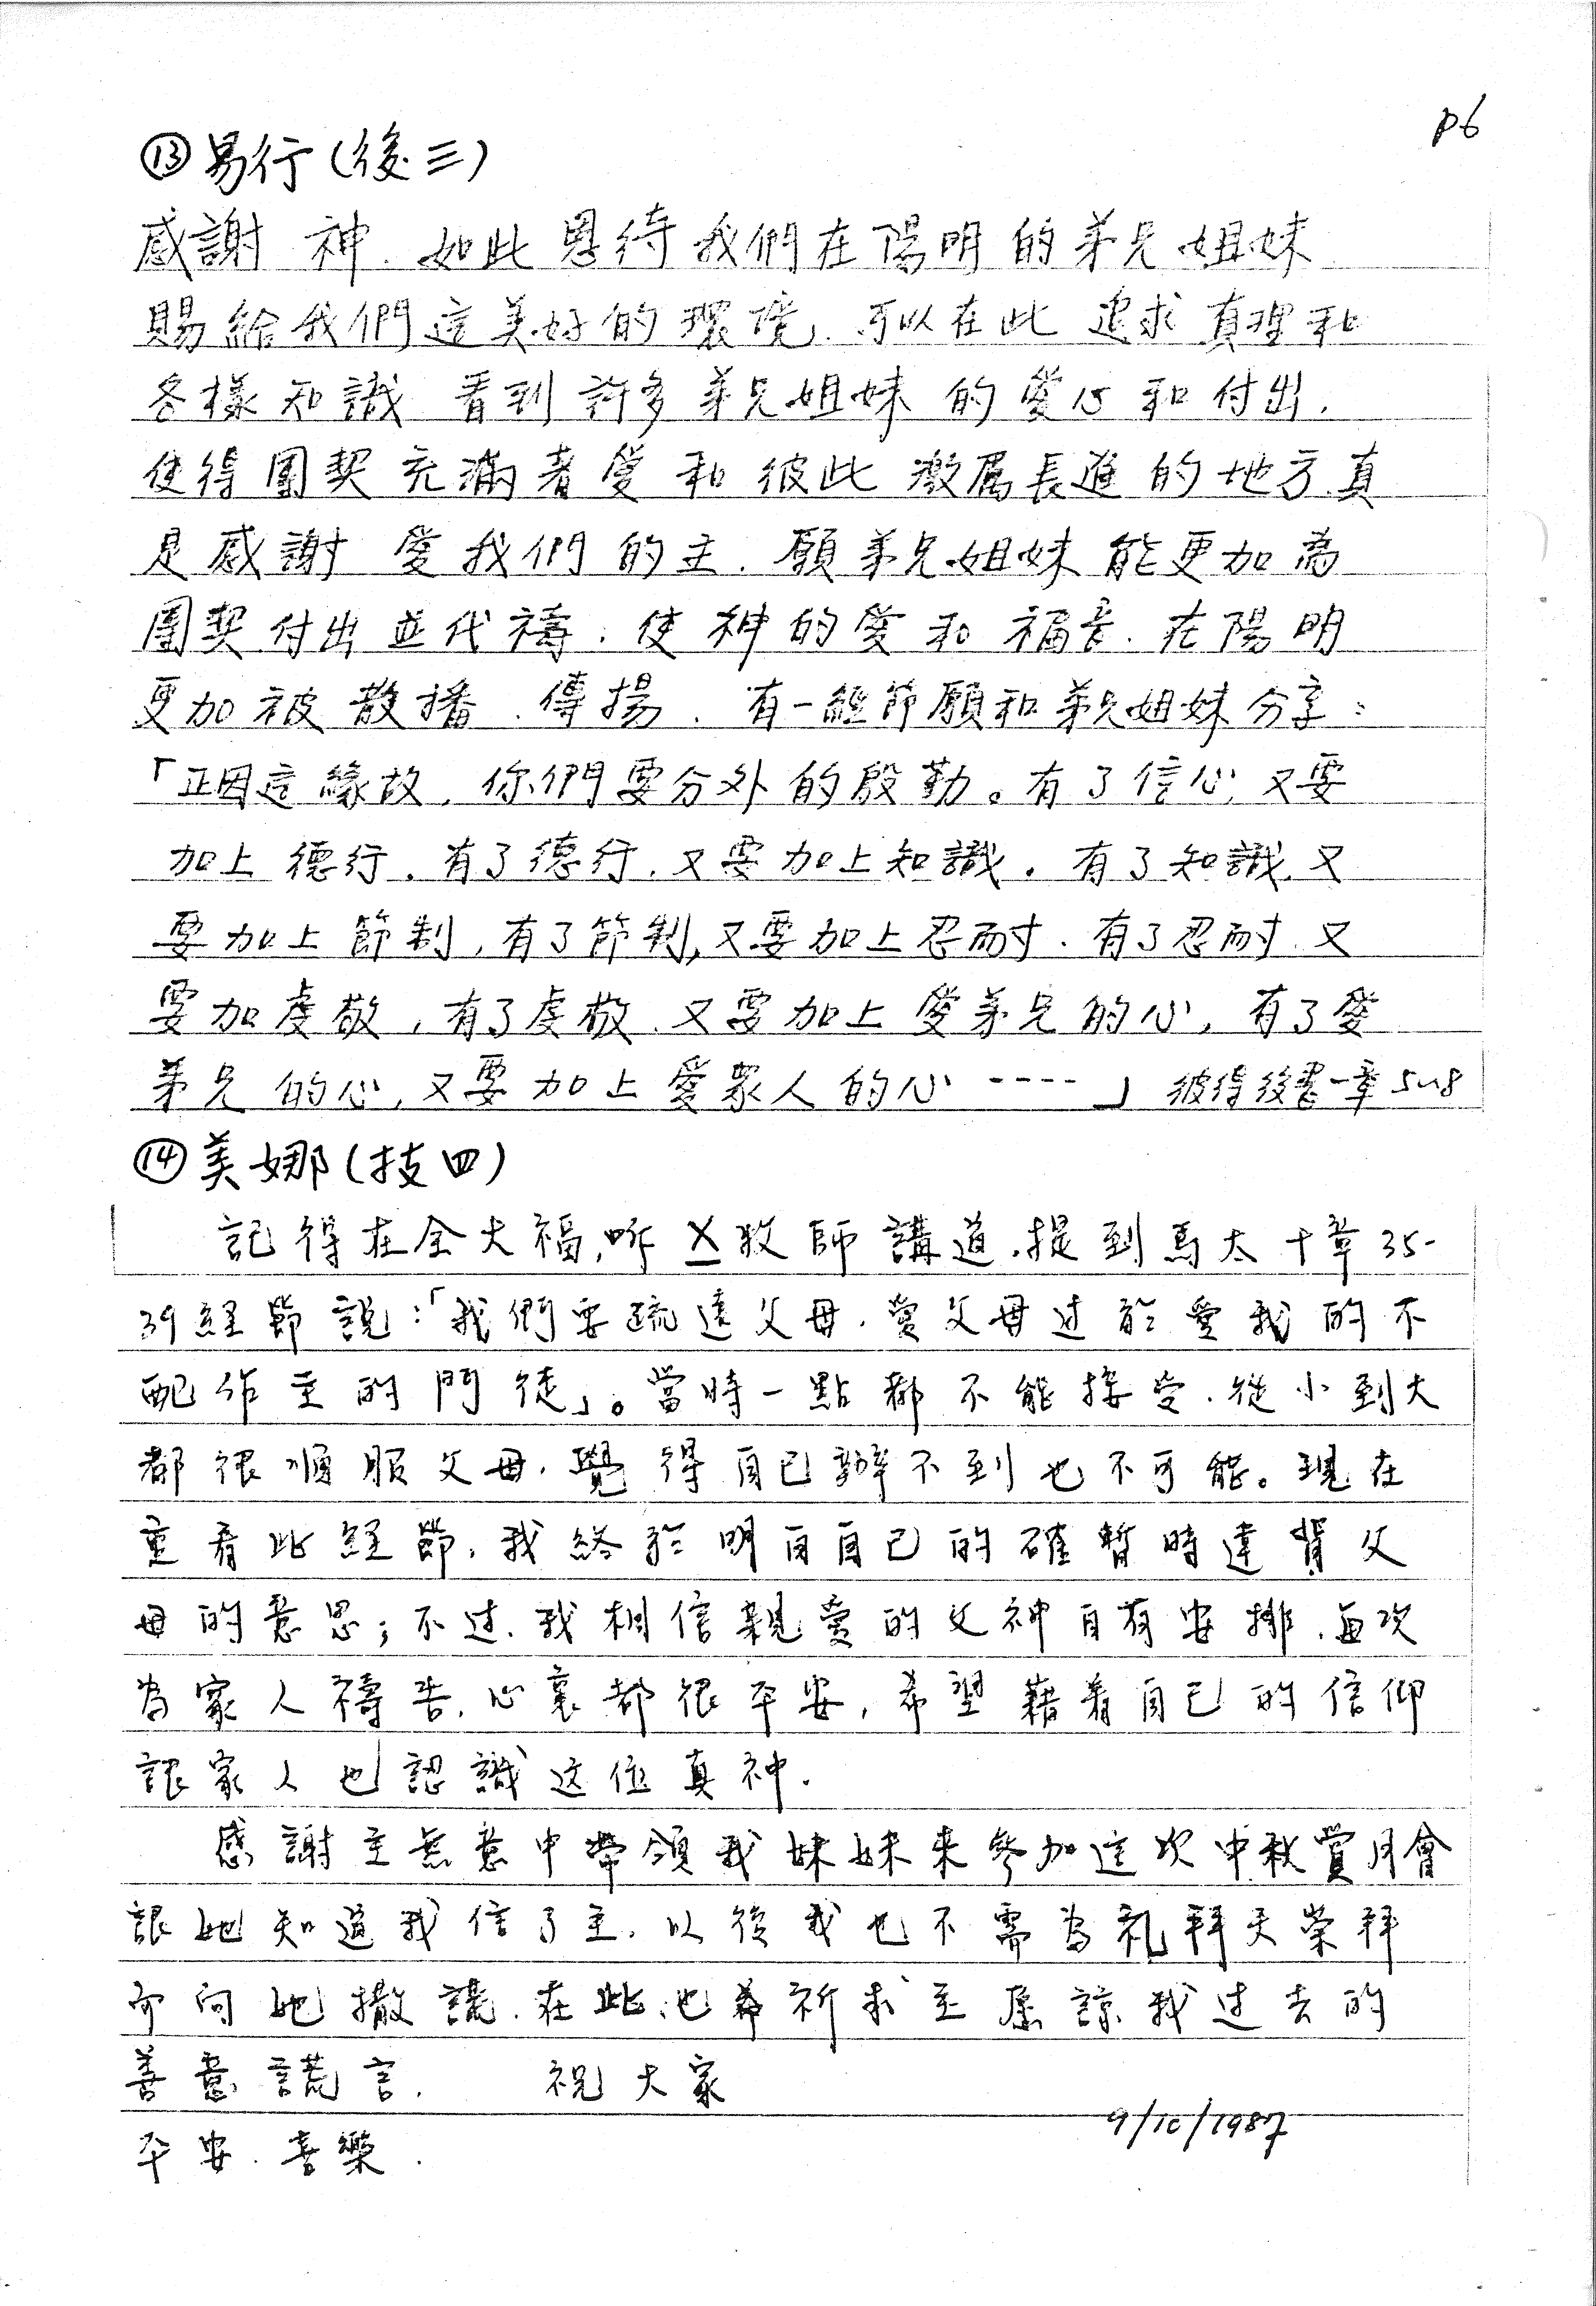 p6
⑬易行(後三)
感謝 神.如此恩待我們在陽明的弟兄姐妹
賜給我們這美好的環境,可以在此追求真理和
各樣知識 看到許多弟兄姐妹的愛心和付出.
使得團契充滿著愛和彼此激厲長進的地方.真
是感謝愛我們的主.願弟兄姐妹能更加為
團契付出並代禱.使神的愛和福音.在陽明
更加被散播.傳揚.有一經節願和弟兄姐妹分享:
「正因這緣故,你們要分外的殷勤。有了信心,又要
加上德行.有了德行.又要加上知識.有了知識,又
要加上節制,有了節制,又要加上忍耐.有了忍耐.又
要加虔敬,有了虔敬.又要加上愛弟兄的心,有了愛
弟兄的心,又要加上愛眾人的心----」彼得後書一章5~8
⑭美娜(技四)
記得在全大福,听X牧師講道.提到馬太十章35-
39経節說:「我們要疏遠父母.愛父母过於愛我的不
配作主的門徒」。當時一點都不能接受.從小到大
都很順服父母.覺得自己辦不到也不可能。現在
重看此経節.我終於明白自己的確暫時違背父
母的意思;不过.我相信親愛的父神自有安排.每次
為家人禱告.心裏都很平安,希望藉着自己的信仰
讓家人也認識这位真神.
感謝主無意中帶領我妹妹來參加這次中秋賞月會
讓她知道我信了主.以後我也不需為礼拜天崇拜
而向她撒謊.在此,也祈求主原諒我过去的
善意謊言. 祝大家
平安.喜樂.
9/10/1987